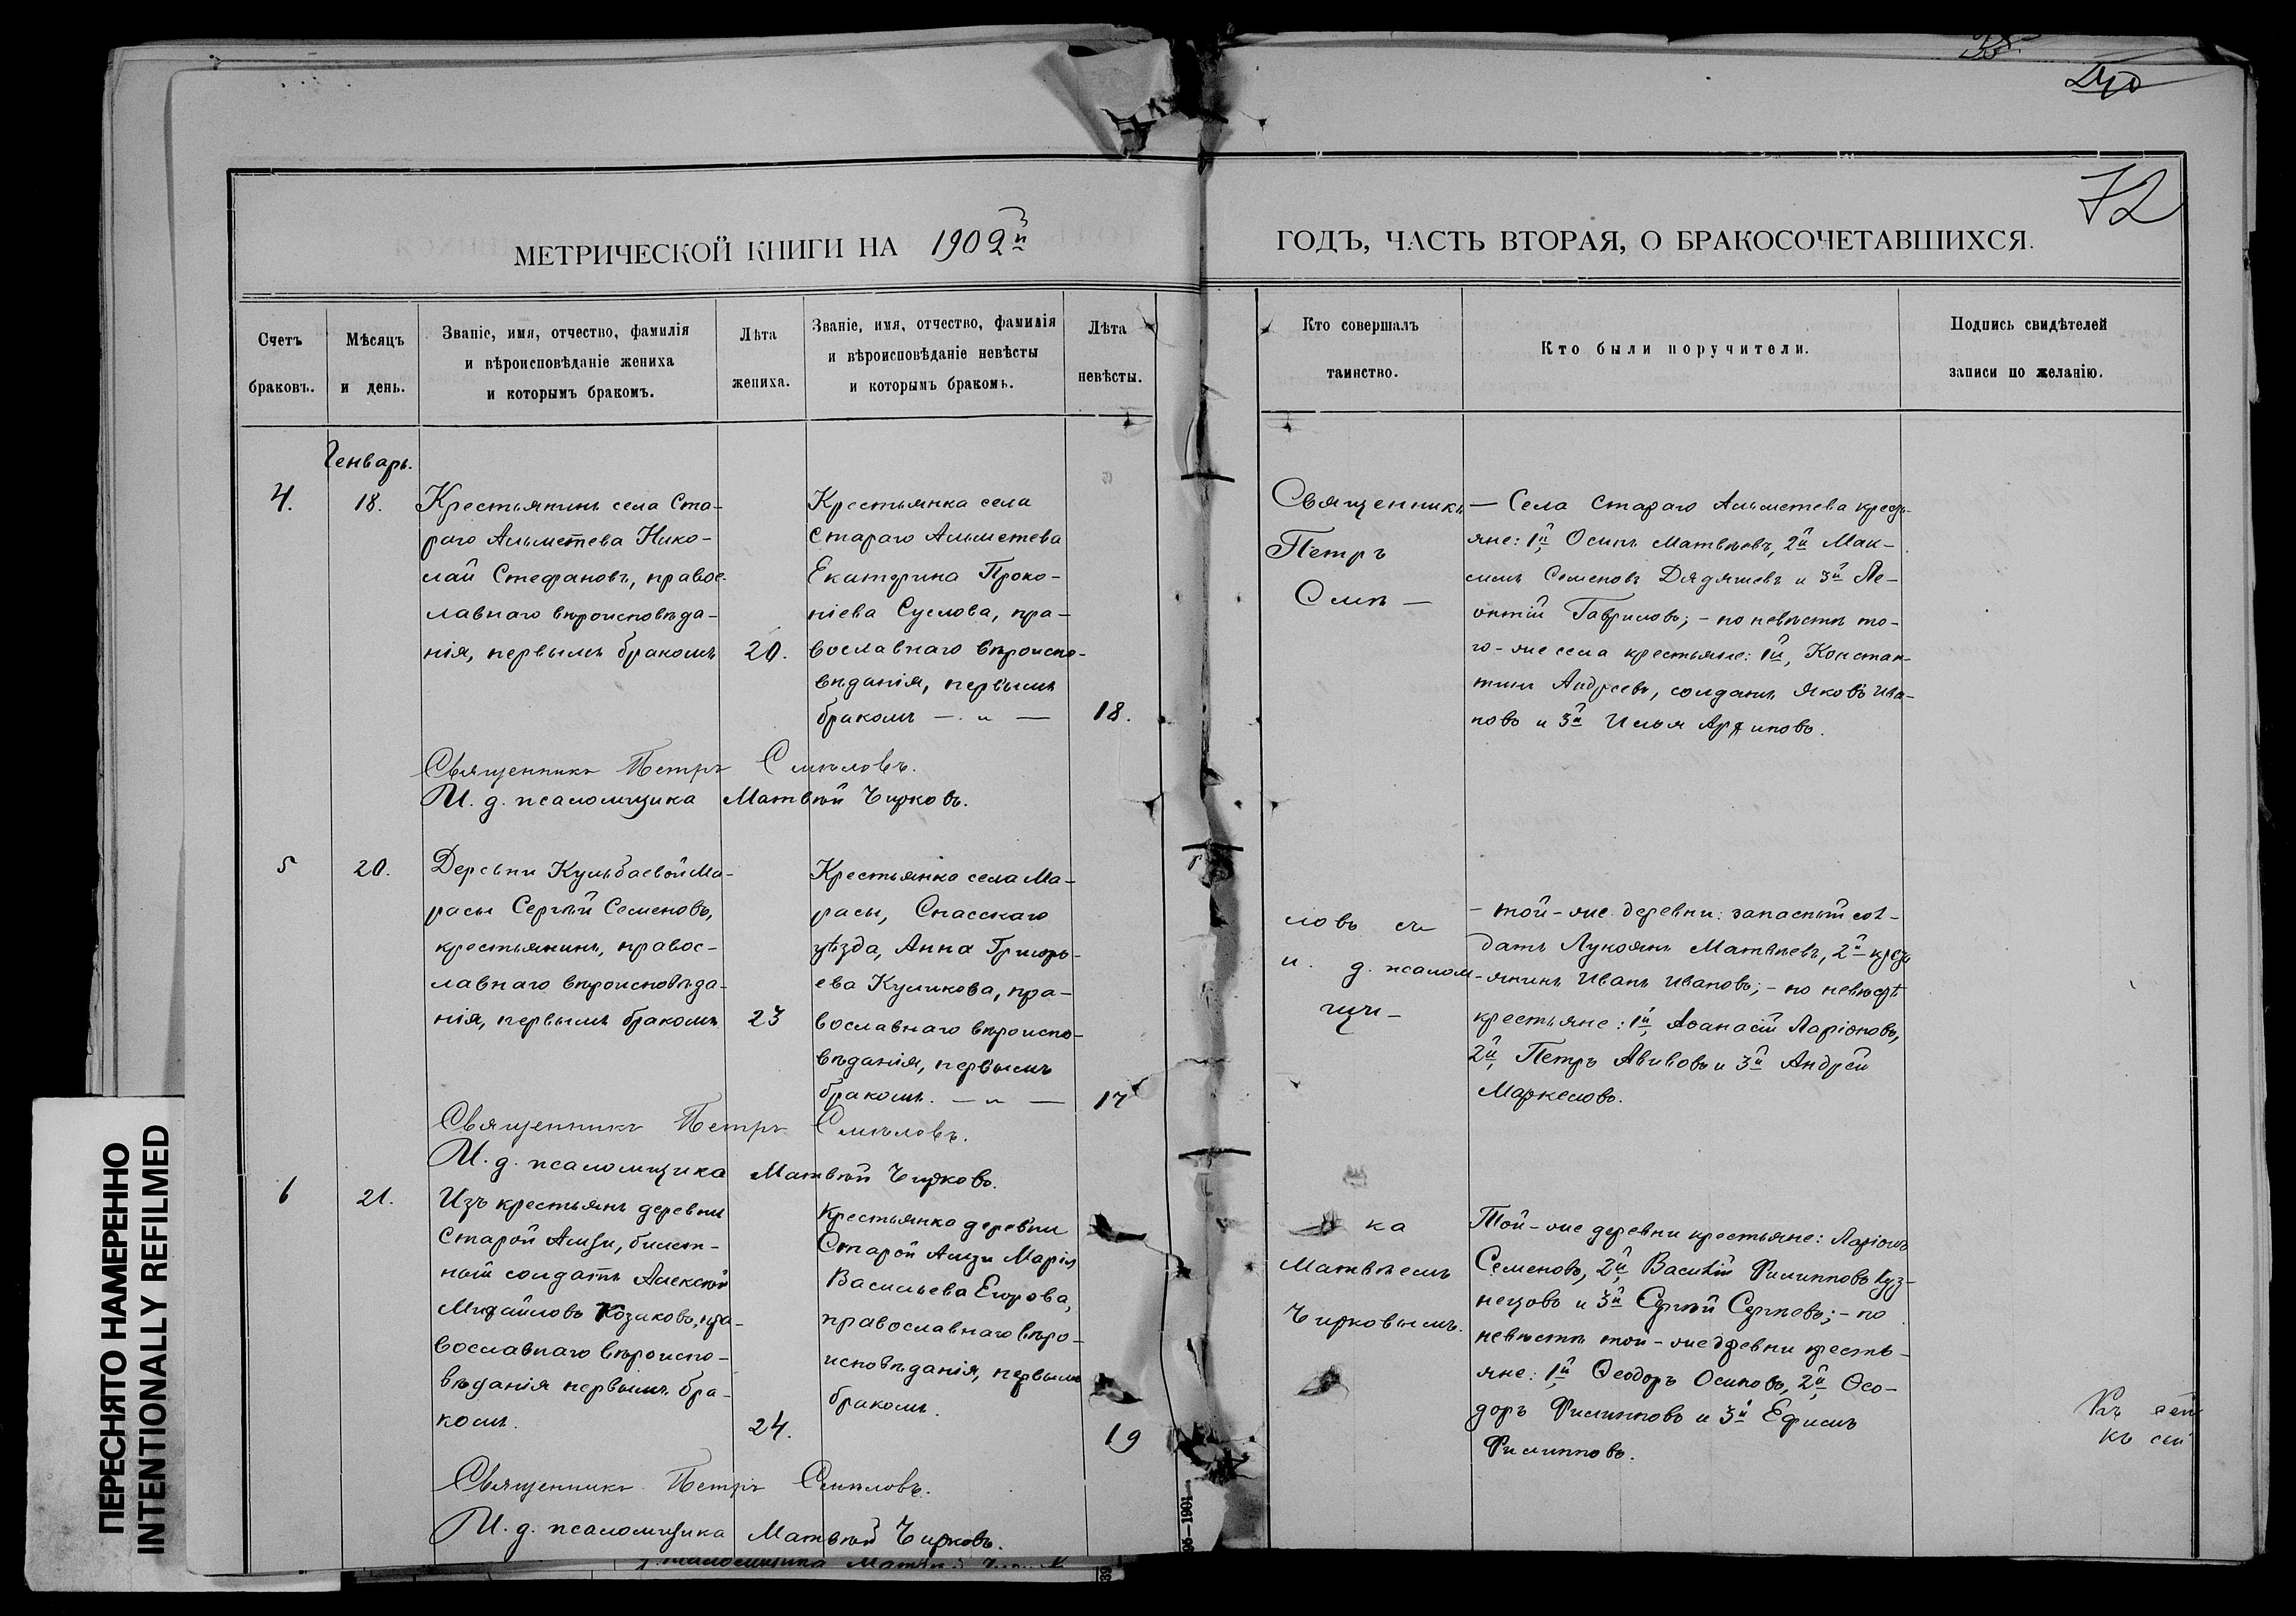 72
МЕТРИЧЕСКОЙ КНИГИ НА 1902й
ГОДЪ, ЧАСТЬ ВТОРАЯ, О БРАКОСОЧЕТАВШИХСЯ.
Счетъ
браковъ.
Мѣсяцъ
и день.
Званіе, имя, отчество, фамилія
и вѣроисповѣданіе жениха
и которымъ бракомъ.
Лѣта
жениха.
Званіе, имя, отчество, фамилія
и вѣроисповѣданіе невѣсты
и которымъ бракомъ.
Лѣта
невѣсты.
Кто совершалъ
таинство.
Кто были поручители.
Подпись свидѣтелей
записи по желанію.
Генварь.
4.
18.
Крестьянинъ села Ста-
раго Альметева Нико-
лай Стефановъ, правос-
лавнаго вѣроисповѣда-
нія, первымъ бракомъ
20.
Крестьянка села
Стараго Альметева
Екатерина Проко-
піева Суслова, пра-
вославнаго вѣроиспо-
вѣданія, первымъ
бракомъ — " —
18.
Священникъ
Петръ
Смѣ —
— Села Стараго Альметева кресть-
яне: 1й, Осипъ Матвѣевъ, 2й Мак-
симъ Семеновъ Дядяшевъ и 3й Ле-
онтій Гавриловъ; - по невѣстѣ то-
го-же села крестьяне: 1й, Констан-
тинъ Андреевъ, солдатъ Яковъ Ива-
новъ и 3й Илья Архиповъ.
Священникъ Петръ Смѣловъ.
И. д. псаломщика Матвѣй Чирковъ.
5
20.
Деревни Кульбаевой Ма-
расы Сергѣй Семеновъ,
крестьянинъ, правос-
лавнаго вѣроисповѣда-
нія, первымъ бракомъ
23
Крестьянка села Ма-
расы, Спасскаго
уѣзда, Анна Григорь-
ева Куликова, пра-
вославнаго вѣроиспо-
вѣданія, первымъ
бракомъ. — " —
17
ловъ съ
и. д. псалом-
щи-
- той-же деревни: запасный сол-
датъ Лукоянъ Матвѣевъ, 2й кресть-
янинъ Иванъ Ивановъ; - по невѣстѣ
крестьяне: 1й, Аѳанасій Ларіоновъ,
2й, Петръ Авивовъ и 3й Андрей
Маркеловъ.
Священникъ Петръ Смѣловъ.
И. д. псаломщика Матвѣй Чирковъ.
6
21.
Изъ крестьянъ деревни
Старой Амзи, билет-
ный солдатъ Алексѣй
Михайловъ Козаковъ, пра-
вославнаго вѣроиспо-
вѣданія первымъ бра-
комъ.
24.
Крестьянка деревни
Старой Амзи Марія
Васильева Егорова,
православнаго вѣро-
исповѣданія, первымъ
бракомъ.
19
ка
Матвѣемъ
Чирковымъ.
Той-же деревни крестьяне: Ларіонъ
Семеновъ, 2й, Василій Филипповъ Куз-
нецовъ и 3й Сергѣй Сергѣевъ; - по
невѣстѣ той-же деревни кресть-
яне: 1й, Ѳеодоръ Осиповъ, 2й, Ѳео-
доръ Филипповъ и 3й Ефимъ
Филипповъ.
Къ сей
къ сей
Священникъ Петръ Смѣловъ.
И. д. псаломщика Матвѣй Чирковъ.
ПЕРЕСНЯТО НАМЕРЕННО
INTENTIONALLY REFILMED